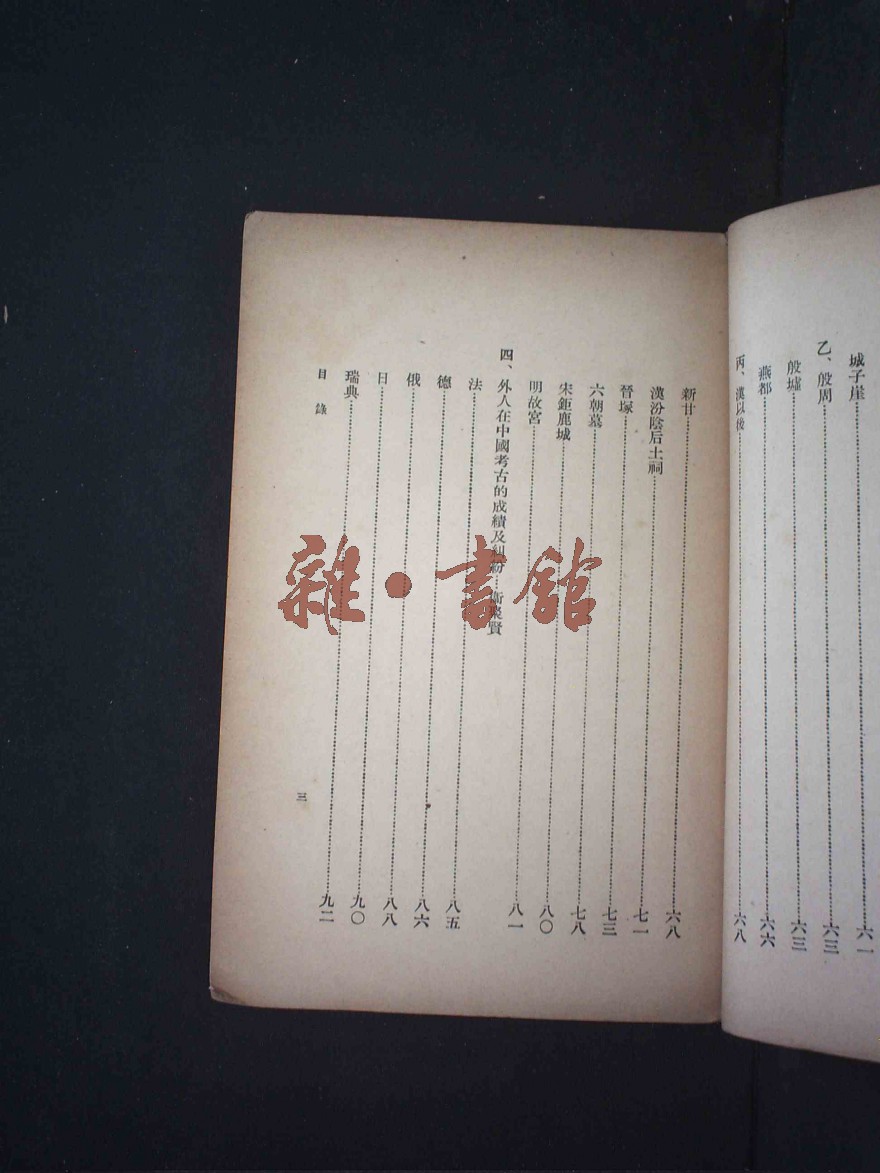 城子崖……六一
乙、殷周……六三
殷墟……六三
燕都……六六
丙、漢以後……六八
新甘……六八
漢汾陰后土祠……七一
晉塚……七三
六朝墓……七八
宋鉅鹿城……八〇
明故宮……八一
四、外人在中國考古的成績及糾紛 衛聚賢
法……八五
德……八六
俄……八八
日……九〇
瑞典……九二
目錄
三
雜·書館